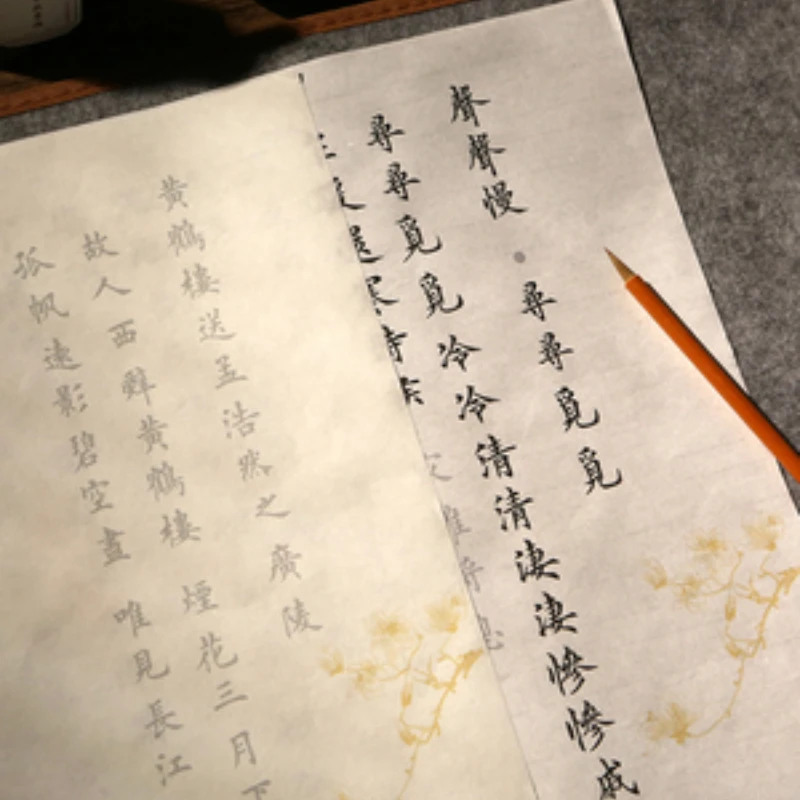 聲聲慢·尋尋覓覓
尋尋覓覓冷冷清清淒淒慘慘戚
黃鶴樓送孟浩然之廣陵
故人西辭黃鶴樓 煙花三月下
孤帆遠影碧空盡 唯見長江